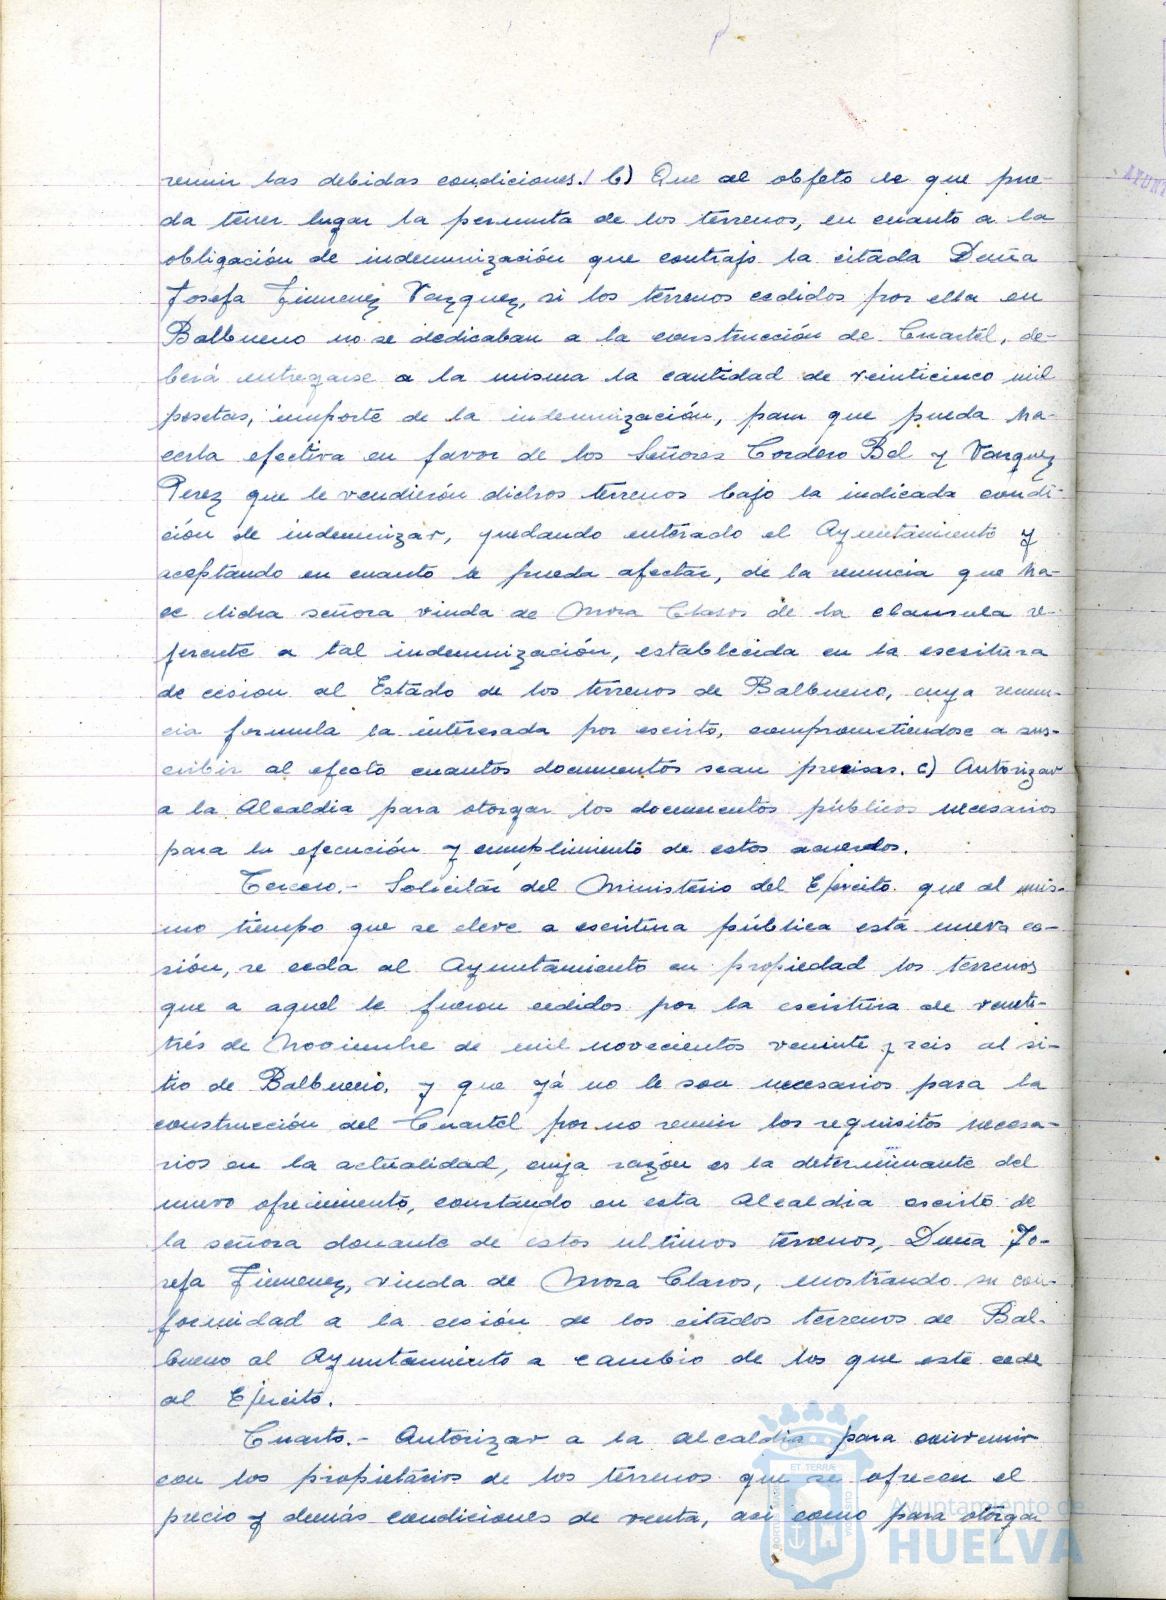 reunir las debidas condiciones. b) Que al objeto de que pue-
da tener lugar la permuta de los terrenos, en cuanto a la
obligación de indemnización que contrajo la citada Doña
Josefa Jimenez Vazquez, si los terrenos cedidos por ella en
Balbueno no se dedicaban a la construcción de Cuartel, de-
berá entregarse a la misma la cantidad de veinticinco mil
pesetas, importe de la indemnización, para que pueda ha-
cerla efectiva en favor de los Señores Cordero Bel y Vazquez
Perez que le vendierón dichos terrenos bajo la indicada condi-
ción de indemnizar, quedando enterado el Ayuntamiento y
aceptando en cuanto le pueda afectar, de la renuncia que ha-
ce dicha señora viuda de Mora Claros de la clausula re-
ferente a tal indemnización, establecida en la escritura
de cesion al Estado de los terrenos de Balbueno, cuya renun-
cia formula la interesada por escrito, comprometiendose a sus-
cribir al efecto cuantos documentos sean precisas. c) Autorizar
a la Alcaldia para otorgar los documentos públicos necesarios
para la ejecución y cumplimiento de estos acuerdos.
Tercero.- Solicitar del Ministerio del Ejercito que al mis-
mo tiempo que se eleve a escritura pública esta nueva ce-
sión, se ceda al Ayuntamiento en propiedad los terrenos
que a aquel le fueron cedidos por la escritura de veinti-
trés de Noviembre de mil novecientos veninte y seis al si-
tio de Balbueno, y que yá no le son necesarios para la
construcción del Cuartel por no reunir los requisitos necesa-
rios en la actualidad, cuya razón es la determinante del
nuevo ofrecimiento, constando en esta Alcaldia escrito de
la señora donante de estos ultimos terrenos, Doña Jo-
sefa Jimenez, viuda de Mora Claros, mostrando su con-
formidad a la cesión de los citados terrenos de Bal-
bueno al Ayuntamiento a cambio de los que este cede
al Ejercito.
Cuarto.- Autorizar a la alcaldia para convenir
con los propietarios de los terrenos que se ofrecen el
precio y demás condiciones de venta, asi como para otorgar
ET TERRÆ
Ayuntamiento de
HUELVA
AYUNT